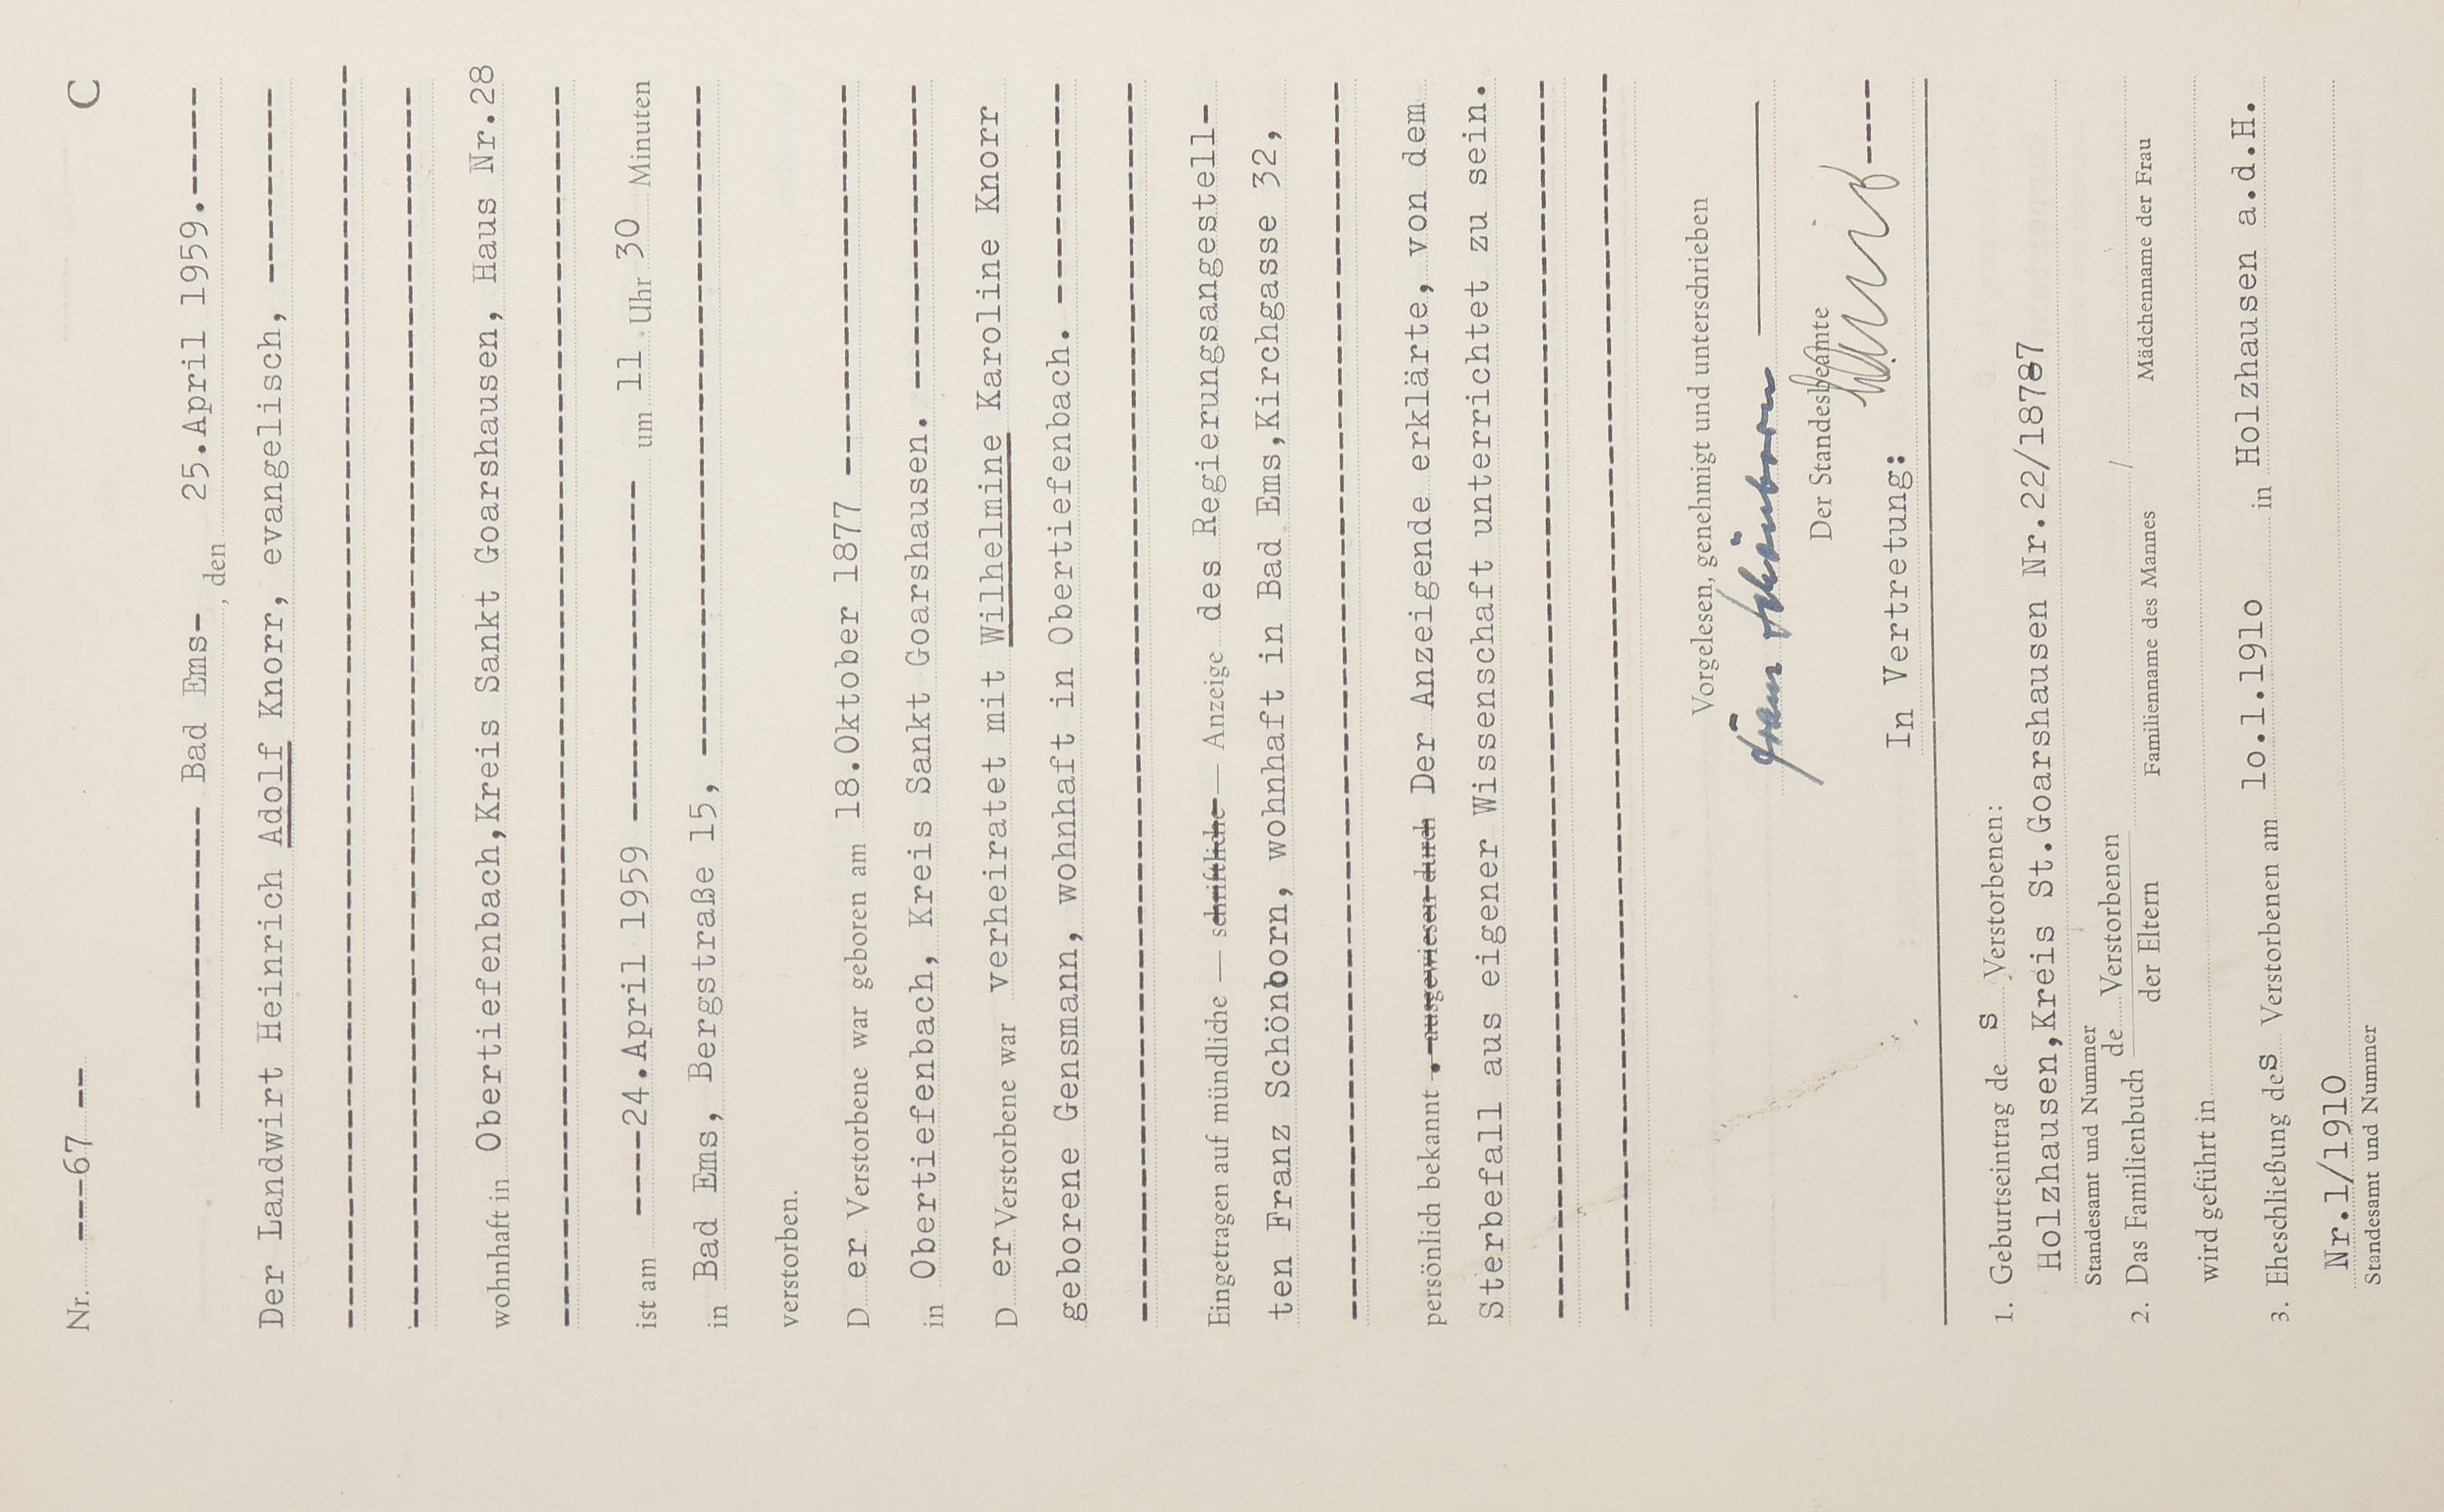 Nr. ---67 -- C
------------- Bad Ems- , den 25.April 1959.-----
Der Landwirt Heinrich Adolf Knorr, evangelisch, --------
wohnhaft in Obertiefenbach,Kreis Sankt Goarshausen, Haus Nr.28
ist am ----24.April 1959 --------------- um 11 Uhr 30 Minuten
in Bad Ems, Bergstraße 15, ------------------------------
verstorben.
D er Verstorbene war geboren am 18.Oktober 1877 -----------------
in Obertiefenbach, Kreis Sankt Goarshausen. -------------
D er Verstorbene war verheiratet mit Wilhelmine Karoline Knorr
geborene Gensmann, wohnhaft in Obertiefenbach. ----------
Eingetragen auf mündliche — schriftliche — Anzeige des Regierungsangestell-
ten Franz Schönborn, wohnhaft in Bad Ems,Kirchgasse 32,
persönlich bekannt . ausgewiesen durch Der Anzeigende erklärte, von dem
Sterbefall aus eigener Wissenschaft unterrichtet zu sein.
Vorgelesen, genehmigt und unterschrieben
Franz Schönborn
Der Standesbeamte
In Vertretung: ----
1. Geburtseintrag de s Verstorbenen:
Holzhausen,Kreis St.Goarshausen Nr.22/18787
Standesamt und Nummer
2. Das Familienbuch de Verstorbenen / der Eltern /
Familienname des Mannes Mädchenname der Frau
wird geführt in
3. Eheschließung des Verstorbenen am lo.1.191o in Holzhausen a.d.H.
Nr.1/1910
Standesamt und Nummer